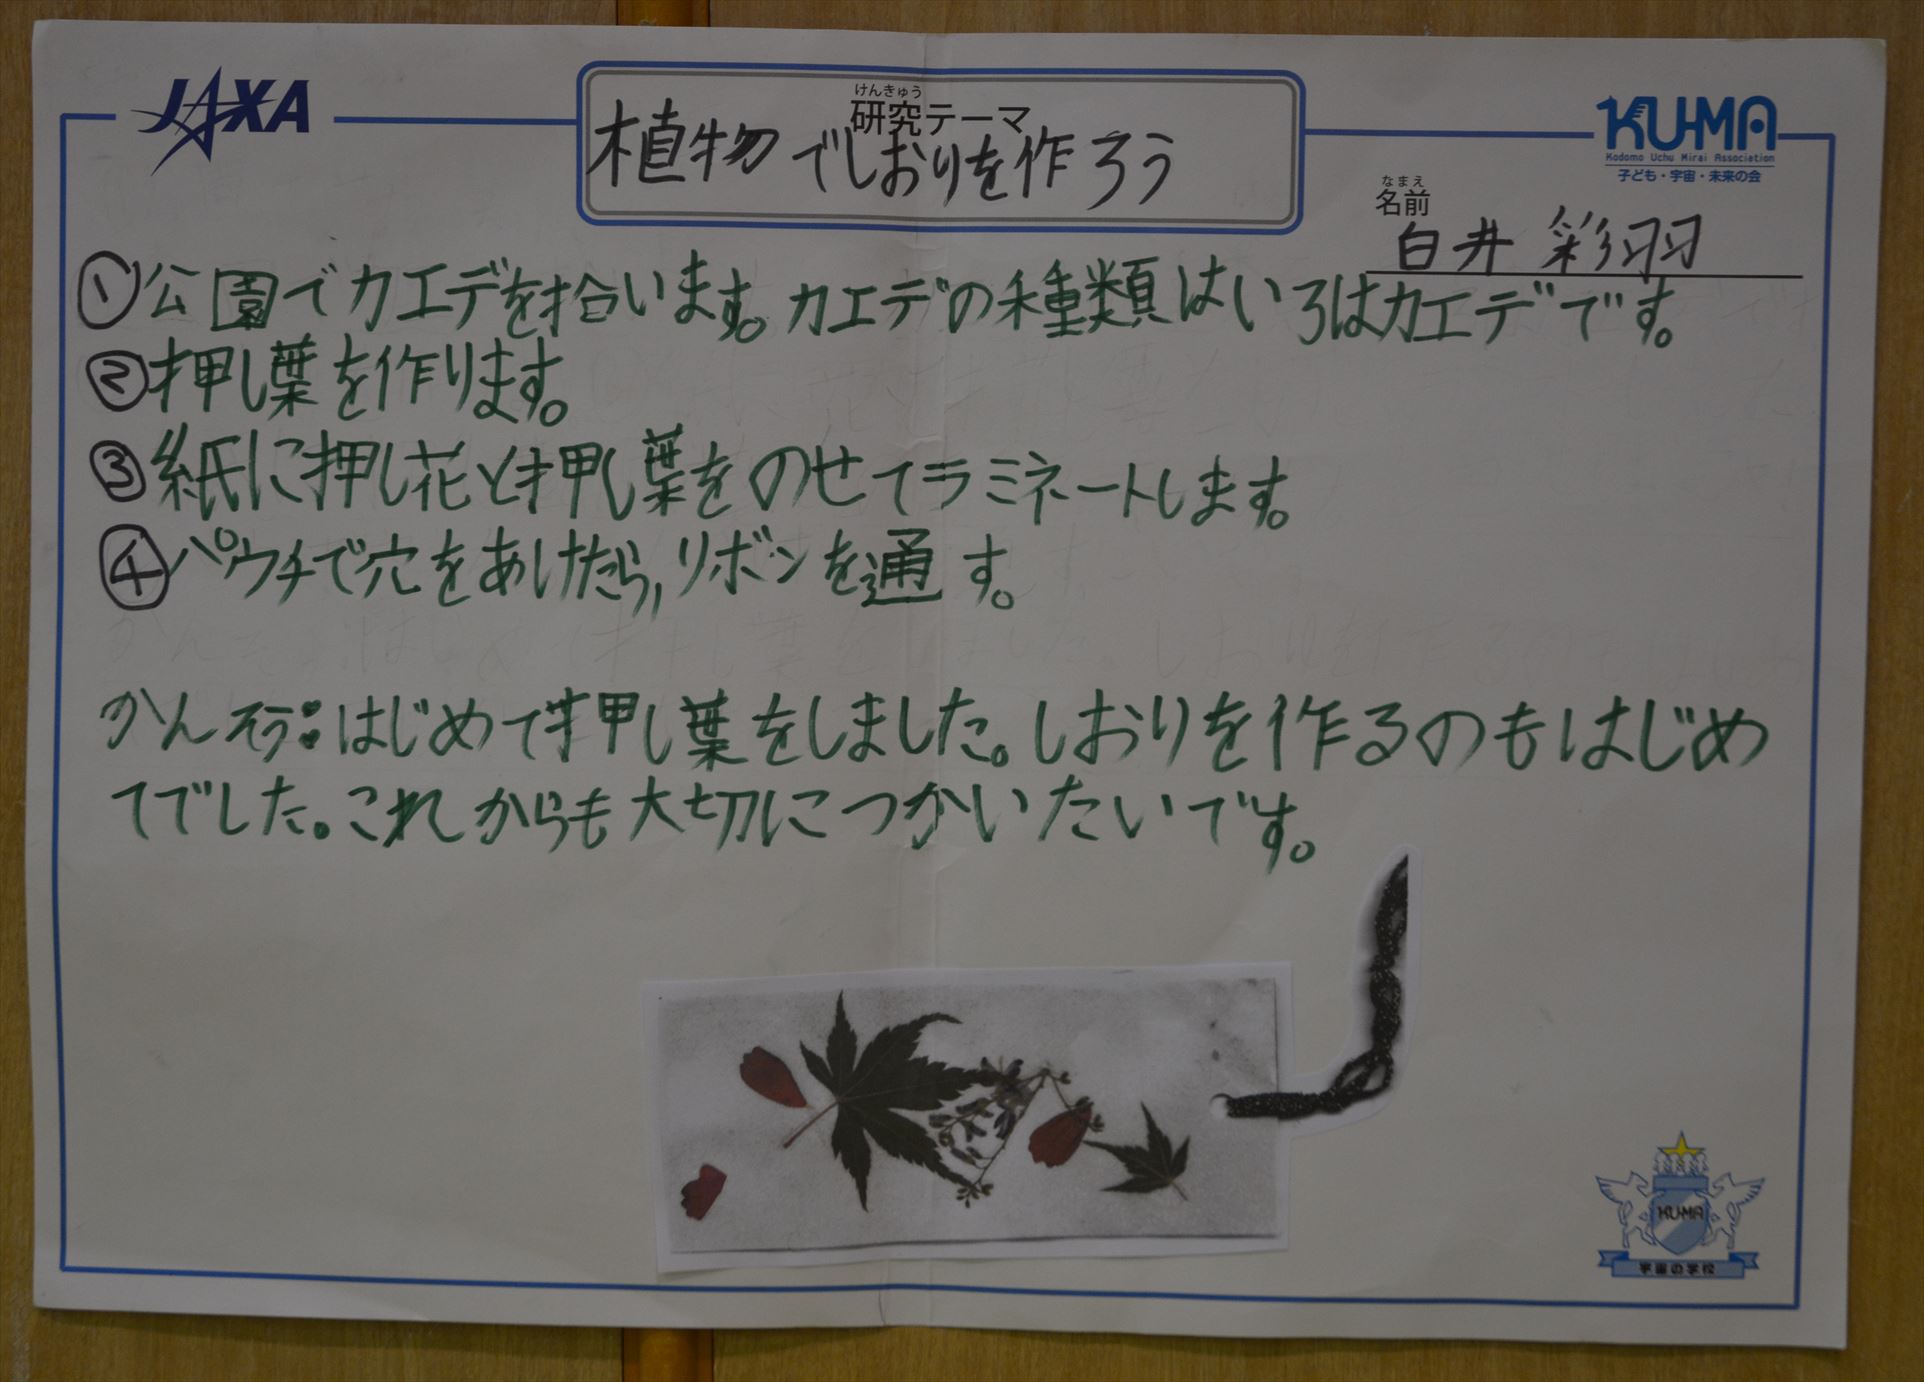 JAXA
けんきゅう
研究テーマ
植物でしおりを作ろう
KU-MA
Kodomo Uchu Mirai Association
子ども・宇宙・未来の会
なまえ
名前
白井 彩羽
①公園でカエデを拾います。カエデの種類はいろはカエデです。
②押し葉を作ります。
③紙に押し花と押し葉をのせてラミネートします。
④パウチで穴をあけたら,リボンを通す。
かんそう:はじめて押し葉をしました。しおりを作るのもはじめ
てでした。これからも大切につかいたいです。
KU-MA
宇宙の学校